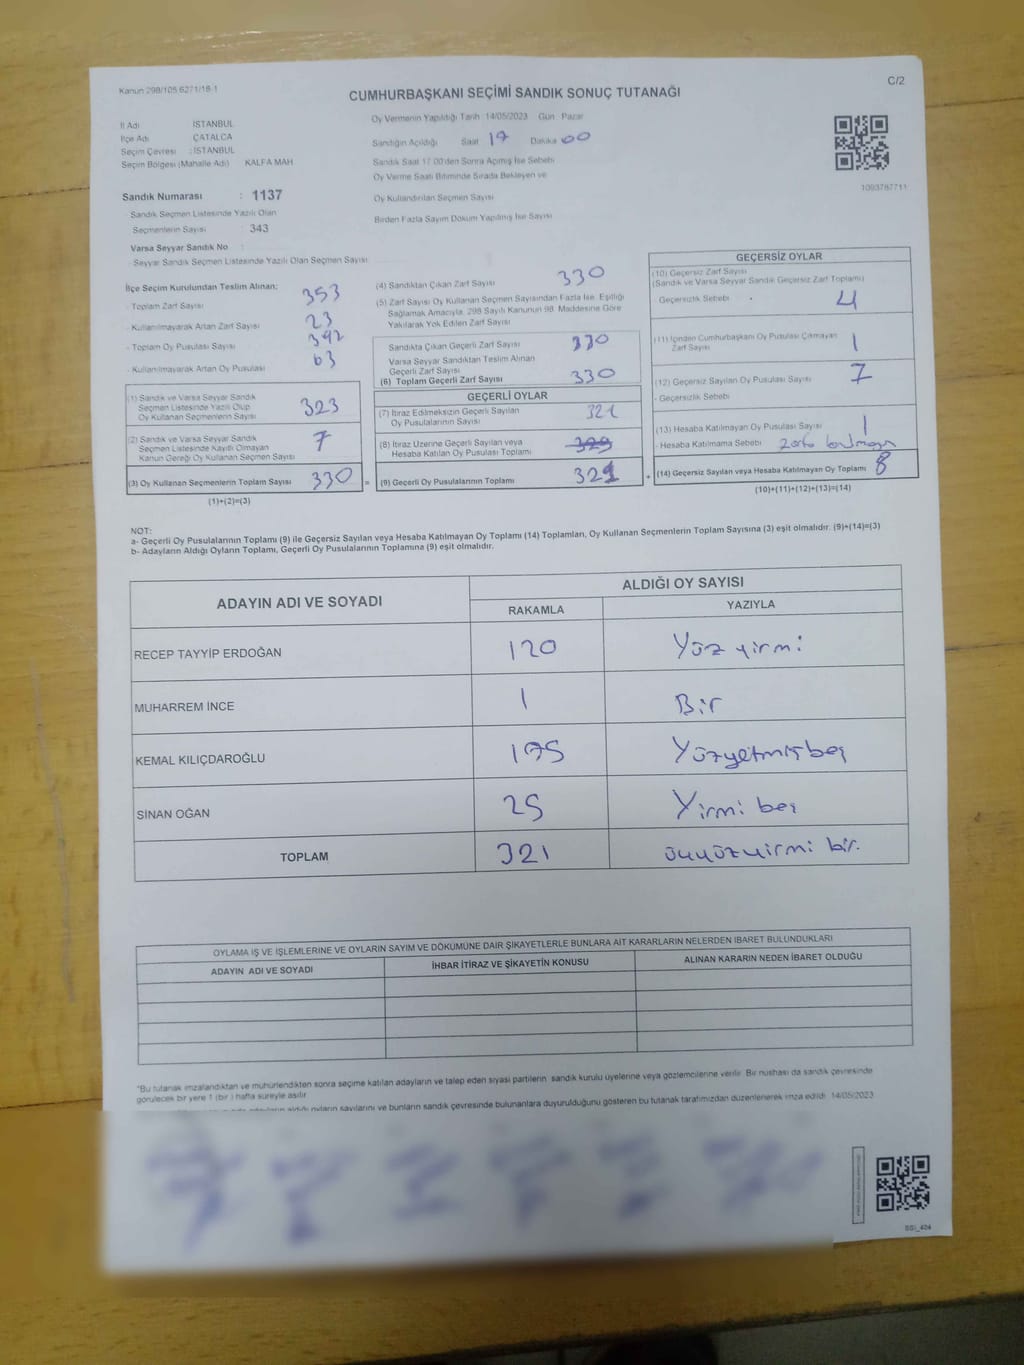 Kanun 298/105 6271/18-1
C/2
CUMHURBAŞKANI SEÇİMİ SANDIK SONUÇ TUTANAĞI
İl Adı İSTANBUL
İlçe Adı ÇATALCA
Seçim Çevresi : İSTANBUL
Seçim Bölgesi (Mahalle Adı) KALFA MAH
Oy Vermenin Yapıldığı Tarih 14/05/2023 Gün Pazar
Sandığın Açıldığı Saat 17 Dakika 00
Sandık Saat 17.00'den Sonra Açılmış İse Sebebi
Oy Verme Saati Bitiminde Sırada Bekleyen ve
Oy Kullandırılan Seçmen Sayısı
Birden Fazla Sayım Döküm Yapılmış İse Sayısı
1093787711
Sandık Numarası : 1137
- Sandık Seçmen Listesinde Yazılı Olan
Seçmenlerin Sayısı : 343
Varsa Seyyar Sandık No :
- Seyyar Sandık Seçmen Listesinde Yazılı Olan Seçmen Sayısı
İlçe Seçim Kurulundan Teslim Alınan;
- Toplam Zarf Sayısı 353
- Kullanılmayarak Artan Zarf Sayısı 23
- Toplam Oy Pusulası Sayısı 392
- Kullanılmayarak Artan Oy Pusulası 63
(1) Sandık ve Varsa Seyyar Sandık
Seçmen Listesinde Yazılı Olup
Oy Kullanan Seçmenlerin Sayısı 323
(2) Sandık ve Varsa Seyyar Sandık
Seçmen Listesinde Kayıtlı Olmayan
Kanun Gereği Oy Kullanan Seçmen Sayısı 7
(3) Oy Kullanan Seçmenlerin Toplam Sayısı 330
(1)+(2)=(3)
(4) Sandıktan Çıkan Zarf Sayısı 330
(5) Zarf Sayısı Oy Kullanan Seçmen Sayısından Fazla İse, Eşitliği
Sağlamak Amacıyla, 298 Sayılı Kanunun 98. Maddesine Göre
Yakılarak Yok Edilen Zarf Sayısı
Sandıkta Çıkan Geçerli Zarf Sayısı 330
Varsa Seyyar Sandıktan Teslim Alınan
Geçerli Zarf Sayısı
(6) Toplam Geçerli Zarf Sayısı 330
GEÇERLİ OYLAR
(7) İtiraz Edilmeksizin Geçerli Sayılan
Oy Pusulalarının Sayısı 321
(8) İtiraz Üzerine Geçerli Sayılan veya
Hesaba Katılan Oy Pusulası Toplamı
= (9) Geçerli Oy Pusulalarının Toplamı 321
GEÇERSİZ OYLAR
(10) Geçersiz Zarf Sayısı
(Sandık ve Varsa Seyyar Sandık Geçersiz Zarf Toplamı)
- Geçersizlik Sebebi 4
(11) İçinden Cumhurbaşkanı Oy Pusulası Çıkmayan
Zarf Sayısı 1
(12) Geçersiz Sayılan Oy Pusulası Sayısı 7
- Geçersizlik Sebebi
(13) Hesaba Katılmayan Oy Pusulası Sayısı 1
- Hesaba Katılmama Sebebi
+ (14) Geçersiz Sayılan veya Hesaba Katılmayan Oy Toplamı 8
(10)+(11)+(12)+(13)=(14)
NOT:
a- Geçerli Oy Pusulalarının Toplamı (9) ile Geçersiz Sayılan veya Hesaba Katılmayan Oy Toplamı (14) Toplamları, Oy Kullanan Seçmenlerin Toplam Sayısına (3) eşit olmalıdır. (9)+(14)=(3)
b- Adayların Aldığı Oyların Toplamı, Geçerli Oy Pusulalarının Toplamına (9) eşit olmalıdır.
ADAYIN ADI VE SOYADI
ALDIĞI OY SAYISI
RAKAMLA YAZIYLA
RECEP TAYYİP ERDOĞAN 120 Yüz yirmi
MUHARREM İNCE 1 Bir
KEMAL KILIÇDAROĞLU 175 Yüzyetmişbeş
SİNAN OĞAN 25 Yirmi beş
TOPLAM 321 üçyüzyirmi bir.
OYLAMA İŞ VE İŞLEMLERİNE VE OYLARIN SAYIM VE DÖKÜMÜNE DAİR ŞİKAYETLERLE BUNLARA AİT KARARLARIN NELERDEN İBARET BULUNDUKLARI
ADAYIN ADI VE SOYADI İHBAR İTİRAZ VE ŞİKAYETİN KONUSU ALINAN KARARIN NEDEN İBARET OLDUĞU
*Bu tutanak imzalandıktan ve mühürlendikten sonra seçime katılan adayların ve talep eden siyasi partilerin sandık kurulu üyelerine veya gözlemcilerine verilir. Bir nüshası da sandık çevresinde
görülecek bir yere 1 (bir) hafta süreyle asılır.
aldığı oyların sayılarını ve bunların sandık çevresinde bulunanlara duyurulduğunu gösteren bu tutanak tarafımızdan düzenlenerek imza edildi. 14/05/2023